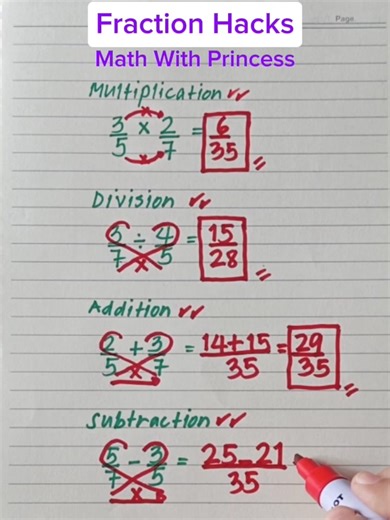 Fraction Hacks
Page
Math With Princess
Multiplication ✓✓
3/5 × 2/7 = 6/35
Division ✓✓
3/7 ÷ 4/5 = 15/28
Addition ✓✓
2/5 + 3/7 = 14+15/35 = 29/35
Subtraction ✓✓
5/7 - 3/5 = 25-21/35